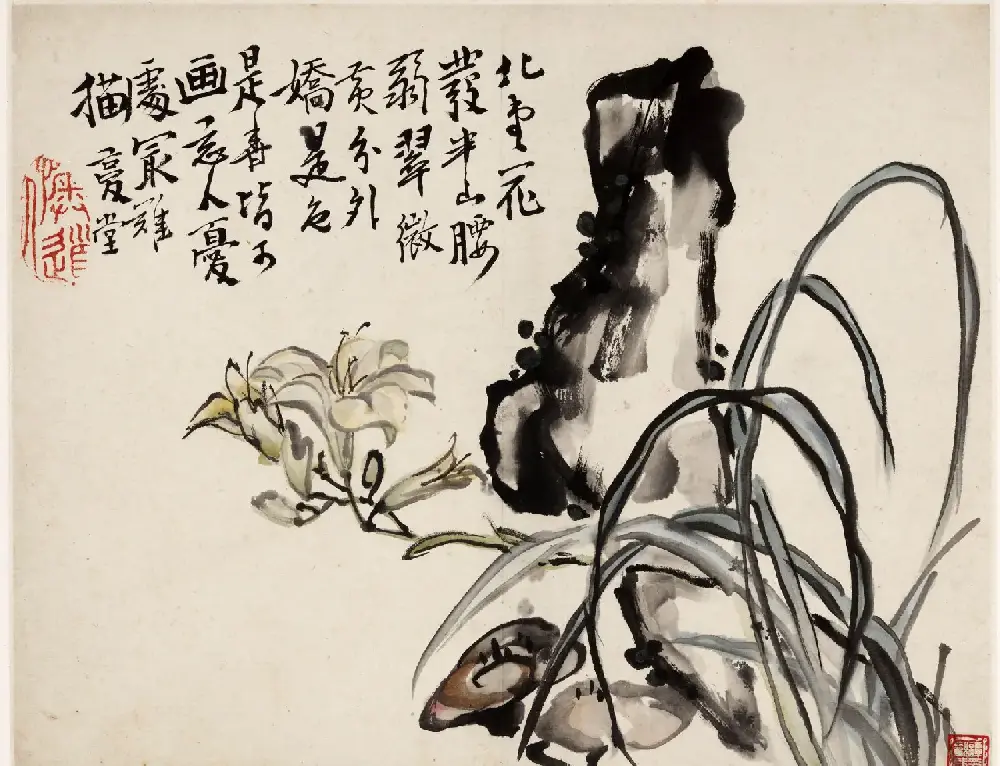 北堂花
發半山腰
弱翠微
黄分外
嬌是色
是香皆可
画忘人憂
處最難
描 复堂
懊道人